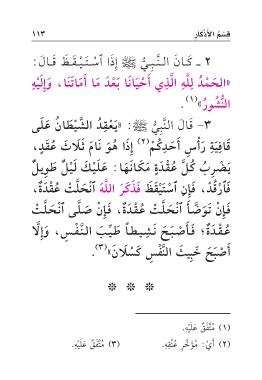 قِسْمُ الأَذْكَارِ ١١٣
٢ - كَانَ النَّبِيُّ ﷺ إِذَا ٱسْتَيْقَظَ قَالَ:
«الحَمْدُ لِلَّهِ الَّذِي أَحْيَانَا بَعْدَ مَا أَمَاتَنَا، وَإِلَيْهِ
النُّشُورُ»(١).
٣- قَالَ النَّبِيُّ ﷺ: «يَعْقِدُ الشَّيْطَانُ عَلَى
قَافِيَةِ رَأْسِ أَحَدِكُمْ(٢) إِذَا هُوَ نَامَ ثَلَاثَ عُقَدٍ،
يَضْرِبُ كُلَّ عُقْدَةٍ مَكَانَهَا: عَلَيْكَ لَيْلٌ طَوِيلٌ
فَٱرْقُدْ، فَإِنِ ٱسْتَيْقَظَ فَذَكَرَ اللَّهَ ٱنْحَلَّتْ عُقْدَةٌ،
فَإِنْ تَوَضَّأَ ٱنْحَلَّتْ عُقْدَةٌ، فَإِنْ صَلَّى ٱنْحَلَّتْ
عُقْدَةٌ؛ فَأَصْبَحَ نَشِيطاً طَيِّبَ النَّفْسِ، وَإِلَّا
أَصْبَحَ خَبِيثَ النَّفْسِ كَسْلَانَ»(٣).
* * *
(١) مُتَّفَقٌ عَلَيْهِ.
(٢) أَيْ: مُؤَخَّرِ عُنُقِهِ. (٣) مُتَّفَقٌ عَلَيْهِ.